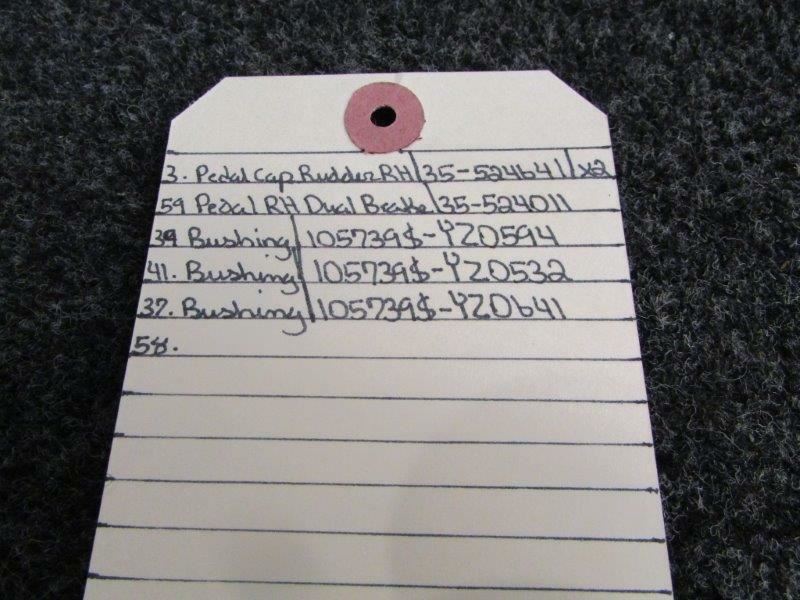 3. Pedal Cap Rudder RH/35-524641/x2
59 Pedal RH Dual Brake/35-524011
39 Bushing/105739$-YZ0594
41. Bushing/105739$-YZ0532
37. Bushing/105739$-YZ0641
58.